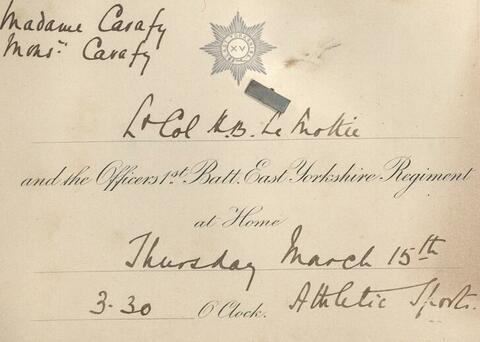 Madame Cavafy
Mons.r Cavafy
XV
Lt Col H.B. Le Mottée
and the Officers 1st. Batt. East Yorkshire Regiment
at Home
Thursday March 15th
3-30 O'Clock. Athletic Sports.